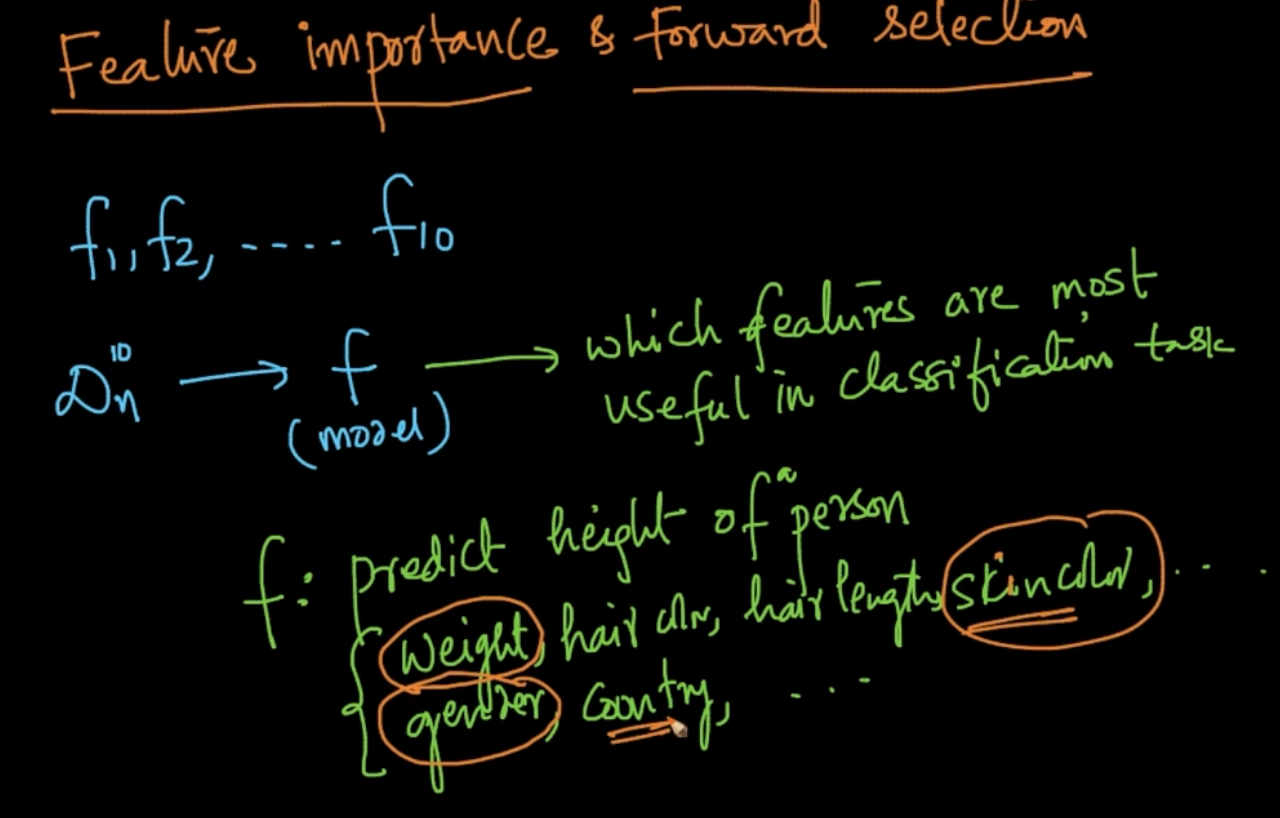 Feature importance & forward selection
f1, f2, ..... f10
Dn^10 → f → which features are most
(model) useful in classification task
f: predict height of a person
{ weight, hair color, hair length, skin color, ....
gender, country, ...